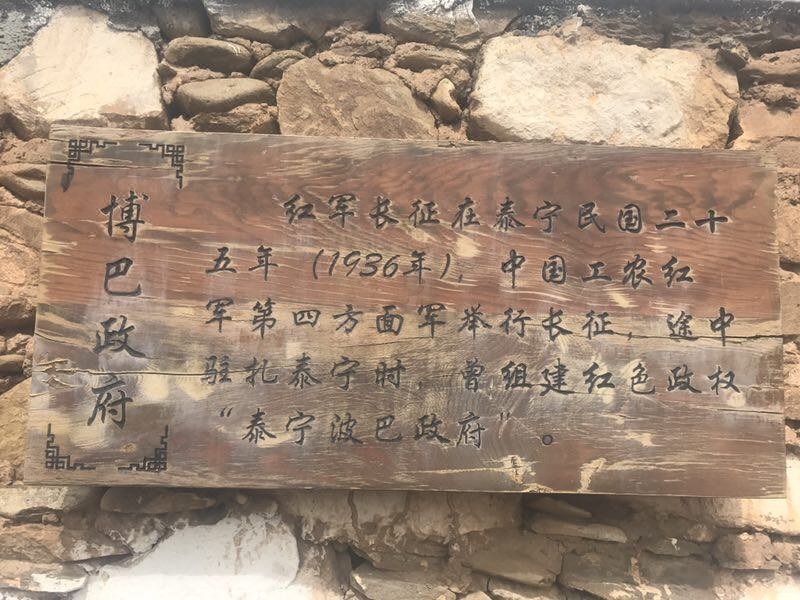 博巴政府
红军长征在泰宁民国二十
五年（1936年），中国工农红
军第四方面军举行长征，途中
驻扎泰宁时，曾组建红色政权
“泰宁波巴政府”。